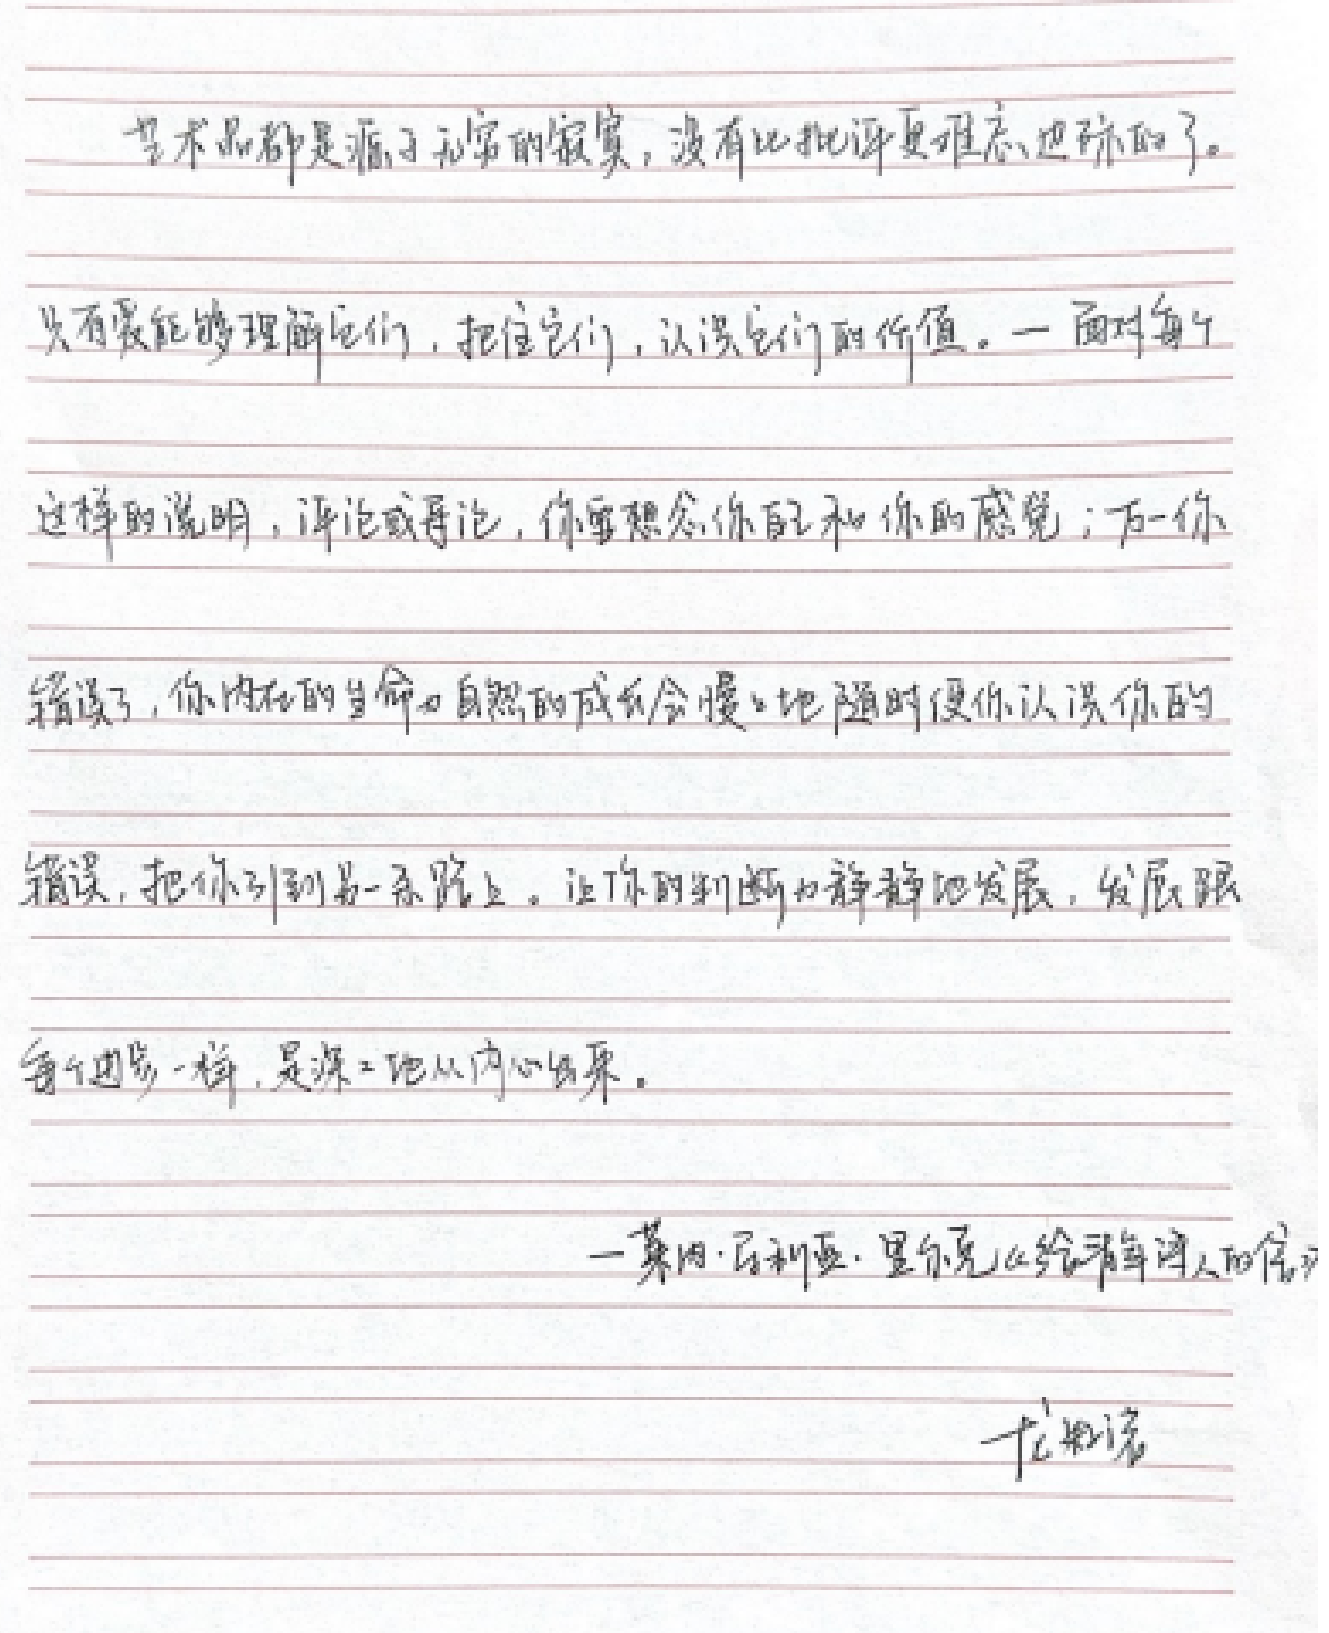 艺术品都是源于无穷的寂寞，没有比批评更难忘边际的了。
只有爱能够理解它们，把住它们，认识它们的价值。一 面对每个
这样的说明，评论或导论，你要想念你自己和你的感觉；万一你
错误了，你内在的生命力自然的成长会慢慢地随时使你认识你的
错误，把你引到另一条路上。让你的判断力静静地发展，发展跟
每个进步一样，是深深地从内心出来。
一莱内·马利亚·里尔克《给青年诗人的信》